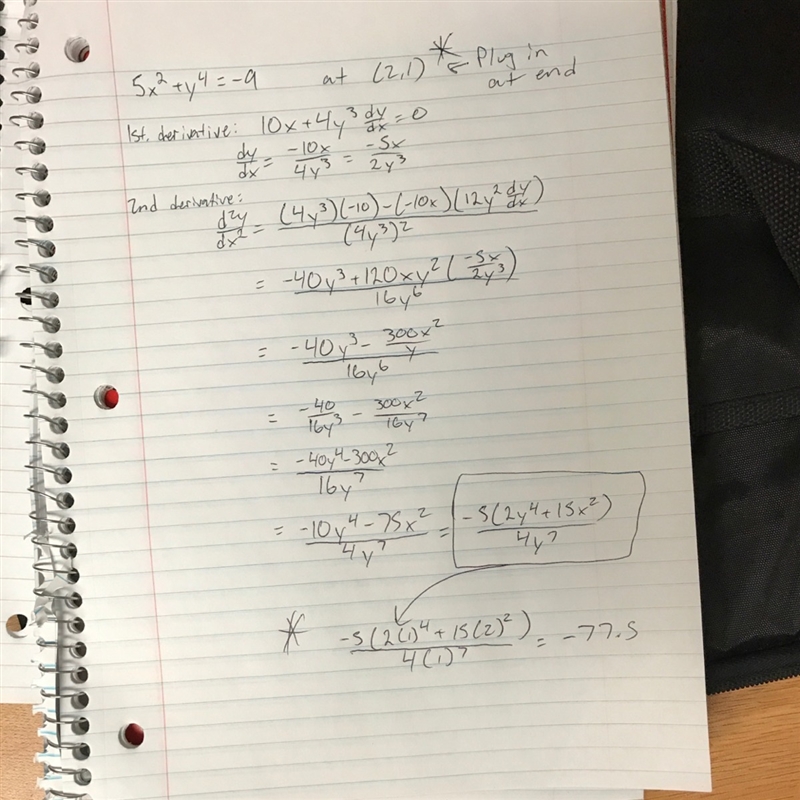 5x² + y⁴ = -9 at (2,1) * ← Plug in at end
1st. derivative: 10x + 4y³ dy/dx = 0
dy/dx = -10x/4y³ = -5x/2y³
2nd derivative:
d²y/dx² = (4y³)(-10) - (-10x)(12y² dy/dx) / (4y³)²
= -40y³ + 120xy² (-5x/2y³) / 16y⁶
= -40y³ - 300x²/y / 16y⁶
= -40/16y³ - 300x²/16y⁷
= -40y⁴ - 300x² / 16y⁷
= -10y⁴ - 75x² / 4y⁷ = -5(2y⁴ + 15x²) / 4y⁷
* -5(2(1)⁴ + 15(2)²) / 4(1)⁷ = -77.5